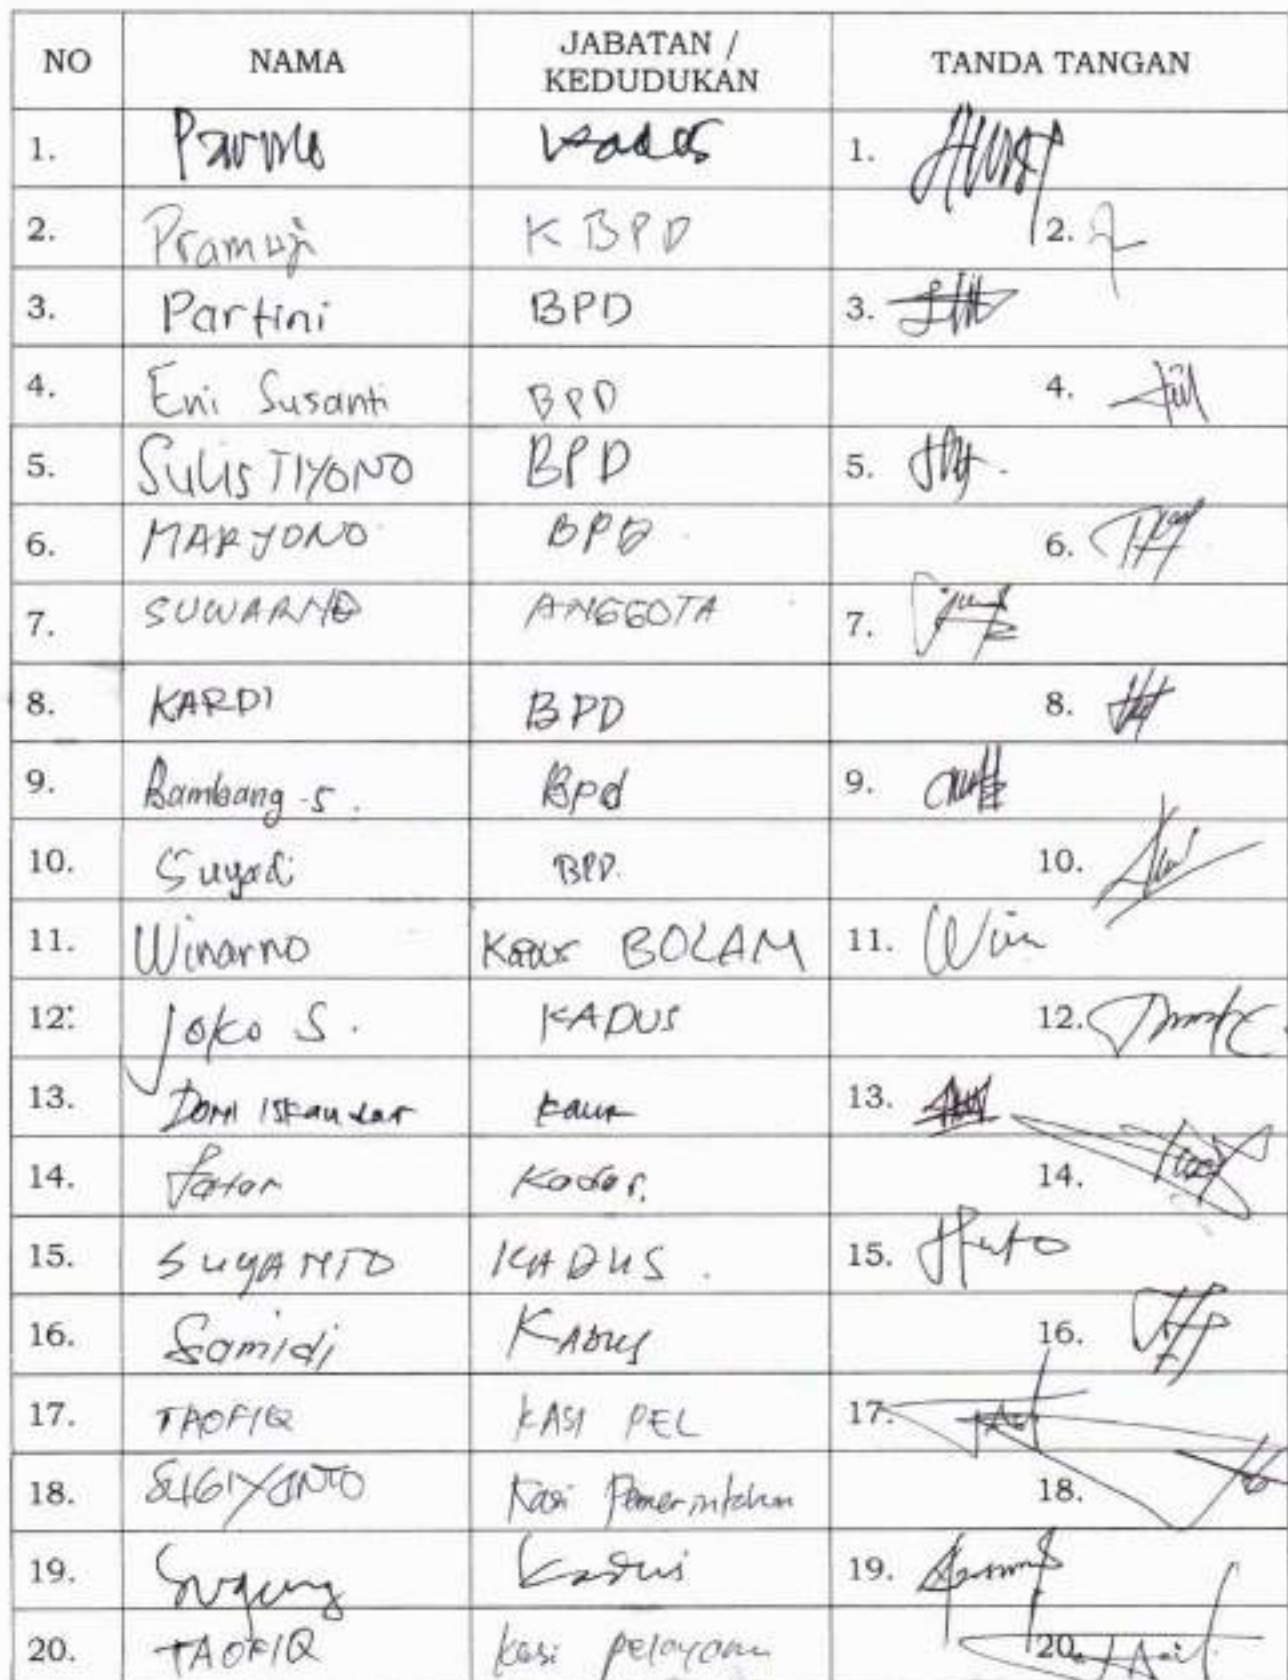 NO NAMA JABATAN / KEDUDUKAN TANDA TANGAN
1. Kades 1.
2. Pramuji K BPD 2.
3. Partini BPD 3.
4. Eni Susanti BPD 4.
5. SULISTIYONO BPD 5.
6. MARYONO BPD 6.
7. SUWARNO ANGGOTA 7.
8. KARDI BPD 8.
9. Bambang -S. Bpd 9.
10. Suyadi BPD. 10.
11. Winarno Kadus BOLAM 11. Win
12. Joko S. KADUS 12.
13. Doni Iskandar Kaur 13.
14. 14.
15. SUYANTO KADUS. 15.
16. Samidi KADUS 16.
17. TAOFIQ KASI PEL 17.
18. SUGIYANTO Kasi Pemerintahan 18.
19. Sugeng Kadus 19.
20. TAOFIQ Kasi pelayanan 20.